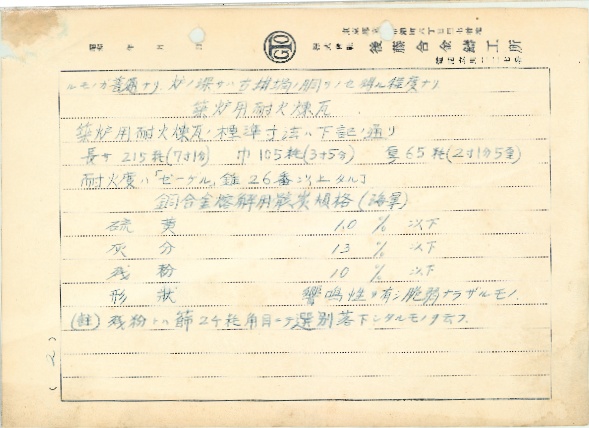 昭和 年 月 日
株式会社 後藤合金鋳工所
ルモノガ普通ナリ 炉ノ深サハ
築炉用耐火煉瓦
築炉用耐火煉瓦ノ標準寸法ハ下記ノ通リ
長サ 215粍(7寸1分) 巾 105粍(3寸5分) 65粍(2寸1分5厘)
耐火度ハ「ゼーゲル」錐26番以上タル
銅合金熔解用骸炭規格(海軍)
硫黄 1.0 % 以下
灰分 13 % 以下
残粉 10 % 以下
形状 響鳴性ヲ有シ脆弱ナラザルモノ
(註) 残粉トハ篩24粍角目ニテ選別落下シタルモノヲ云フ
(2)